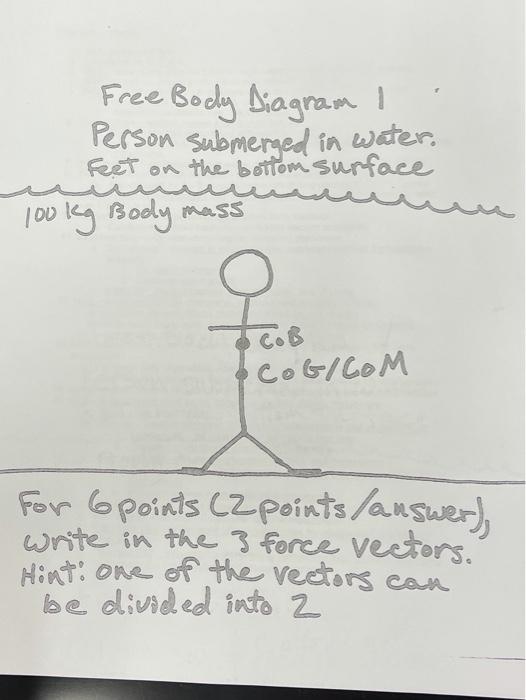 Free Body Diagram 1
Person submerged in water.
Feet on the bottom surface
100 kg Body mass
CoB
CoG/CoM
For 6 points (2 points/answer),
write in the 3 force vectors.
Hint: one of the vectors can
be divided into 2